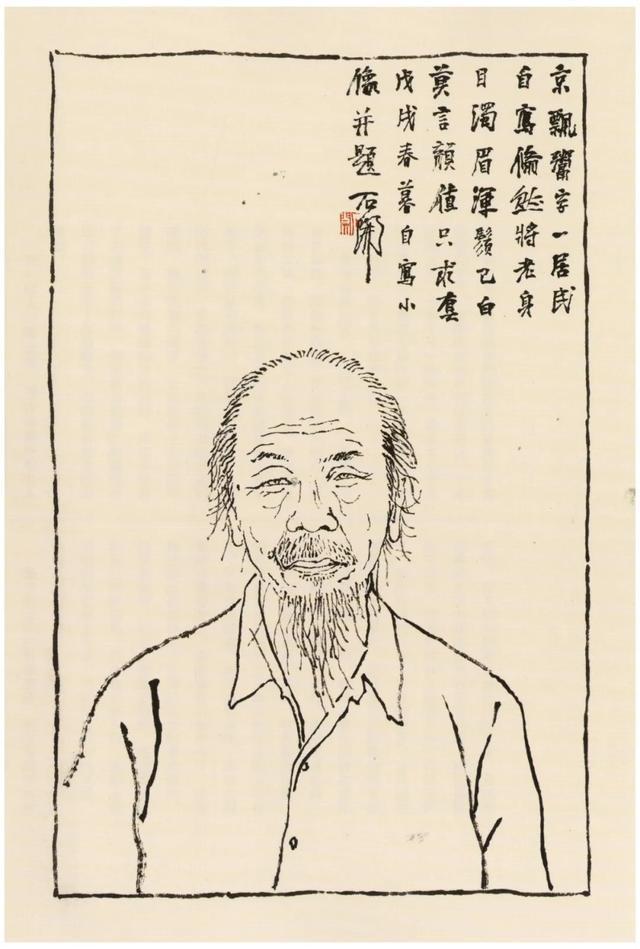 京飄鬻字一居民
自寫然將老身
目濁眉渾鬚已白
莫言顏值只求真
戊戌春暮自寫小
像并題 石開